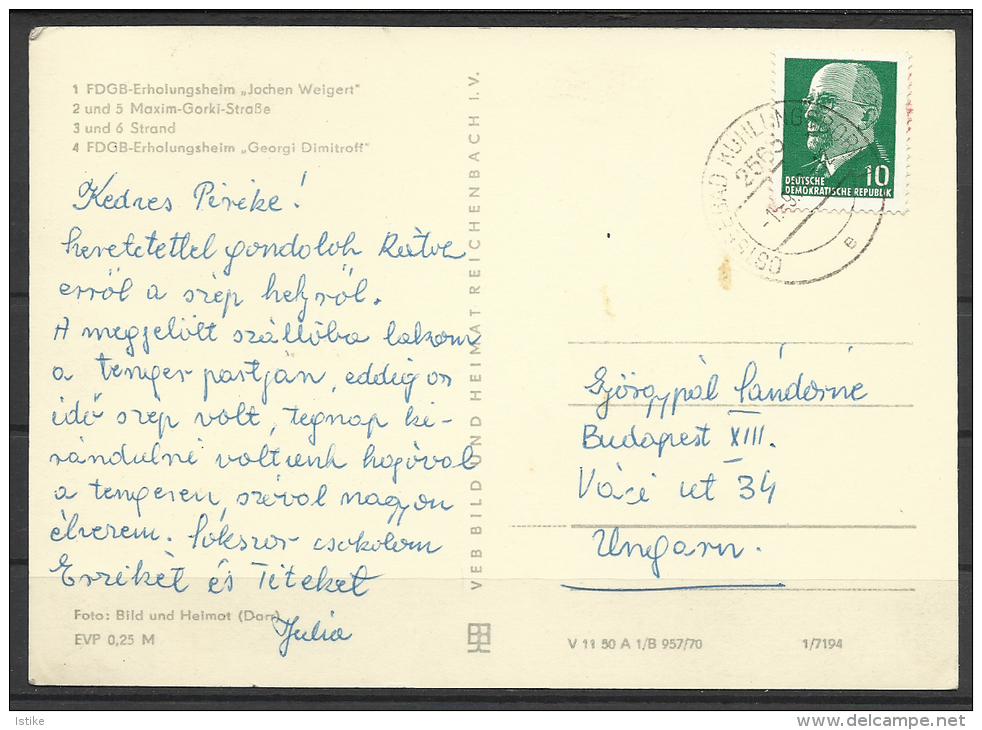 1 FDGB-Erholungsheim „Jochen Weigert"
2 und 5 Maxim-Gorki-Straße
3 und 6 Strand
4 FDGB-Erholungsheim „Georgi Dimitroff"
Kedves Pirike!
szeretettel gondolok Rátok
erről a szép helyről.
A megjelölt szállóba lakom
a tenger partján, eddig az
idő szép volt, tegnap ki-
rándulni voltunk hajóval
a tengeren, szóval nagyon
élvezem. Sokszor csókolom
Erzikét és Titeket
Julia
Foto: Bild und Heimat (Darr)
EVP 0,25 M
VEB BILD UND HEIMAT REICHENBACH I.V.
DEUTSCHE
DEMOKRATISCHE REPUBLIK
10
2565
OSTSEEBAD KÜHLUNGSBORN
e
Györgypál Sándorné
Budapest XIII.
Váci ut 34
Ungarn.
V 11 50 A 1/B 957/70
1/7194
Istike
www.delcampe.net